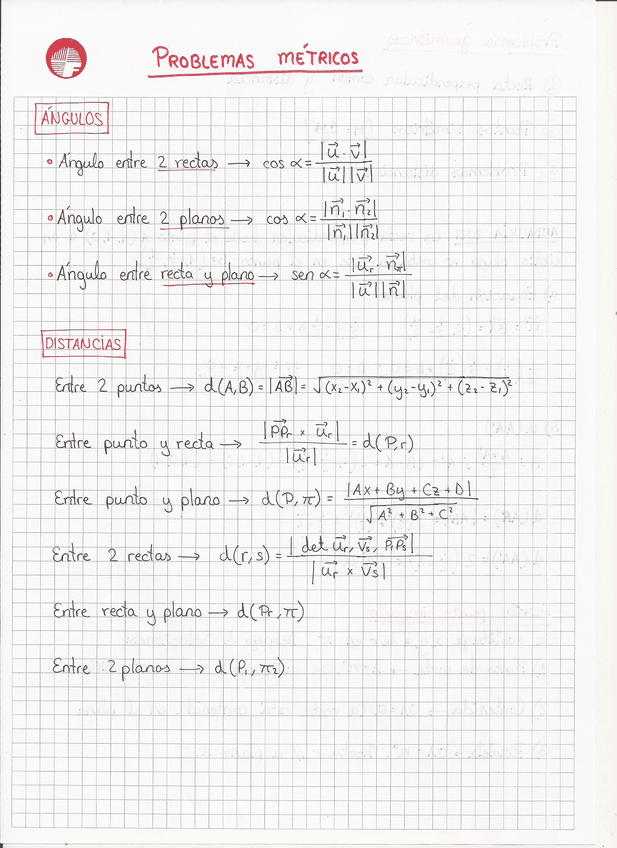 PROBLEMAS MÉTRICOS
ÁNGULOS
• Ángulo entre 2 rectas → cos α = |u⃗ · v⃗| / |u⃗||v⃗|
• Ángulo entre 2 planos → cos α = |n⃗₁ · n⃗₂| / |n⃗₁||n⃗₂|
• Ángulo entre recta y plano → sen α = |u⃗r · n⃗π| / |u⃗||n⃗|
DISTANCIAS
Entre 2 puntos → d(A,B) = |AB⃗| = √(x₂-x₁)² + (y₂-y₁)² + (z₂-z₁)²
Entre punto y recta → |PPr⃗ × u⃗r| / |u⃗r| = d(P,r)
Entre punto y plano → d(P,π) = |Ax + By + Cz + D| / √A² + B² + C²
Entre 2 rectas → d(r,s) = |det u⃗r, v⃗s, PrPs⃗| / |u⃗r × v⃗s|
Entre recta y plano → d(Pr,π)
Entre 2 planos → d(P₁,π₂)